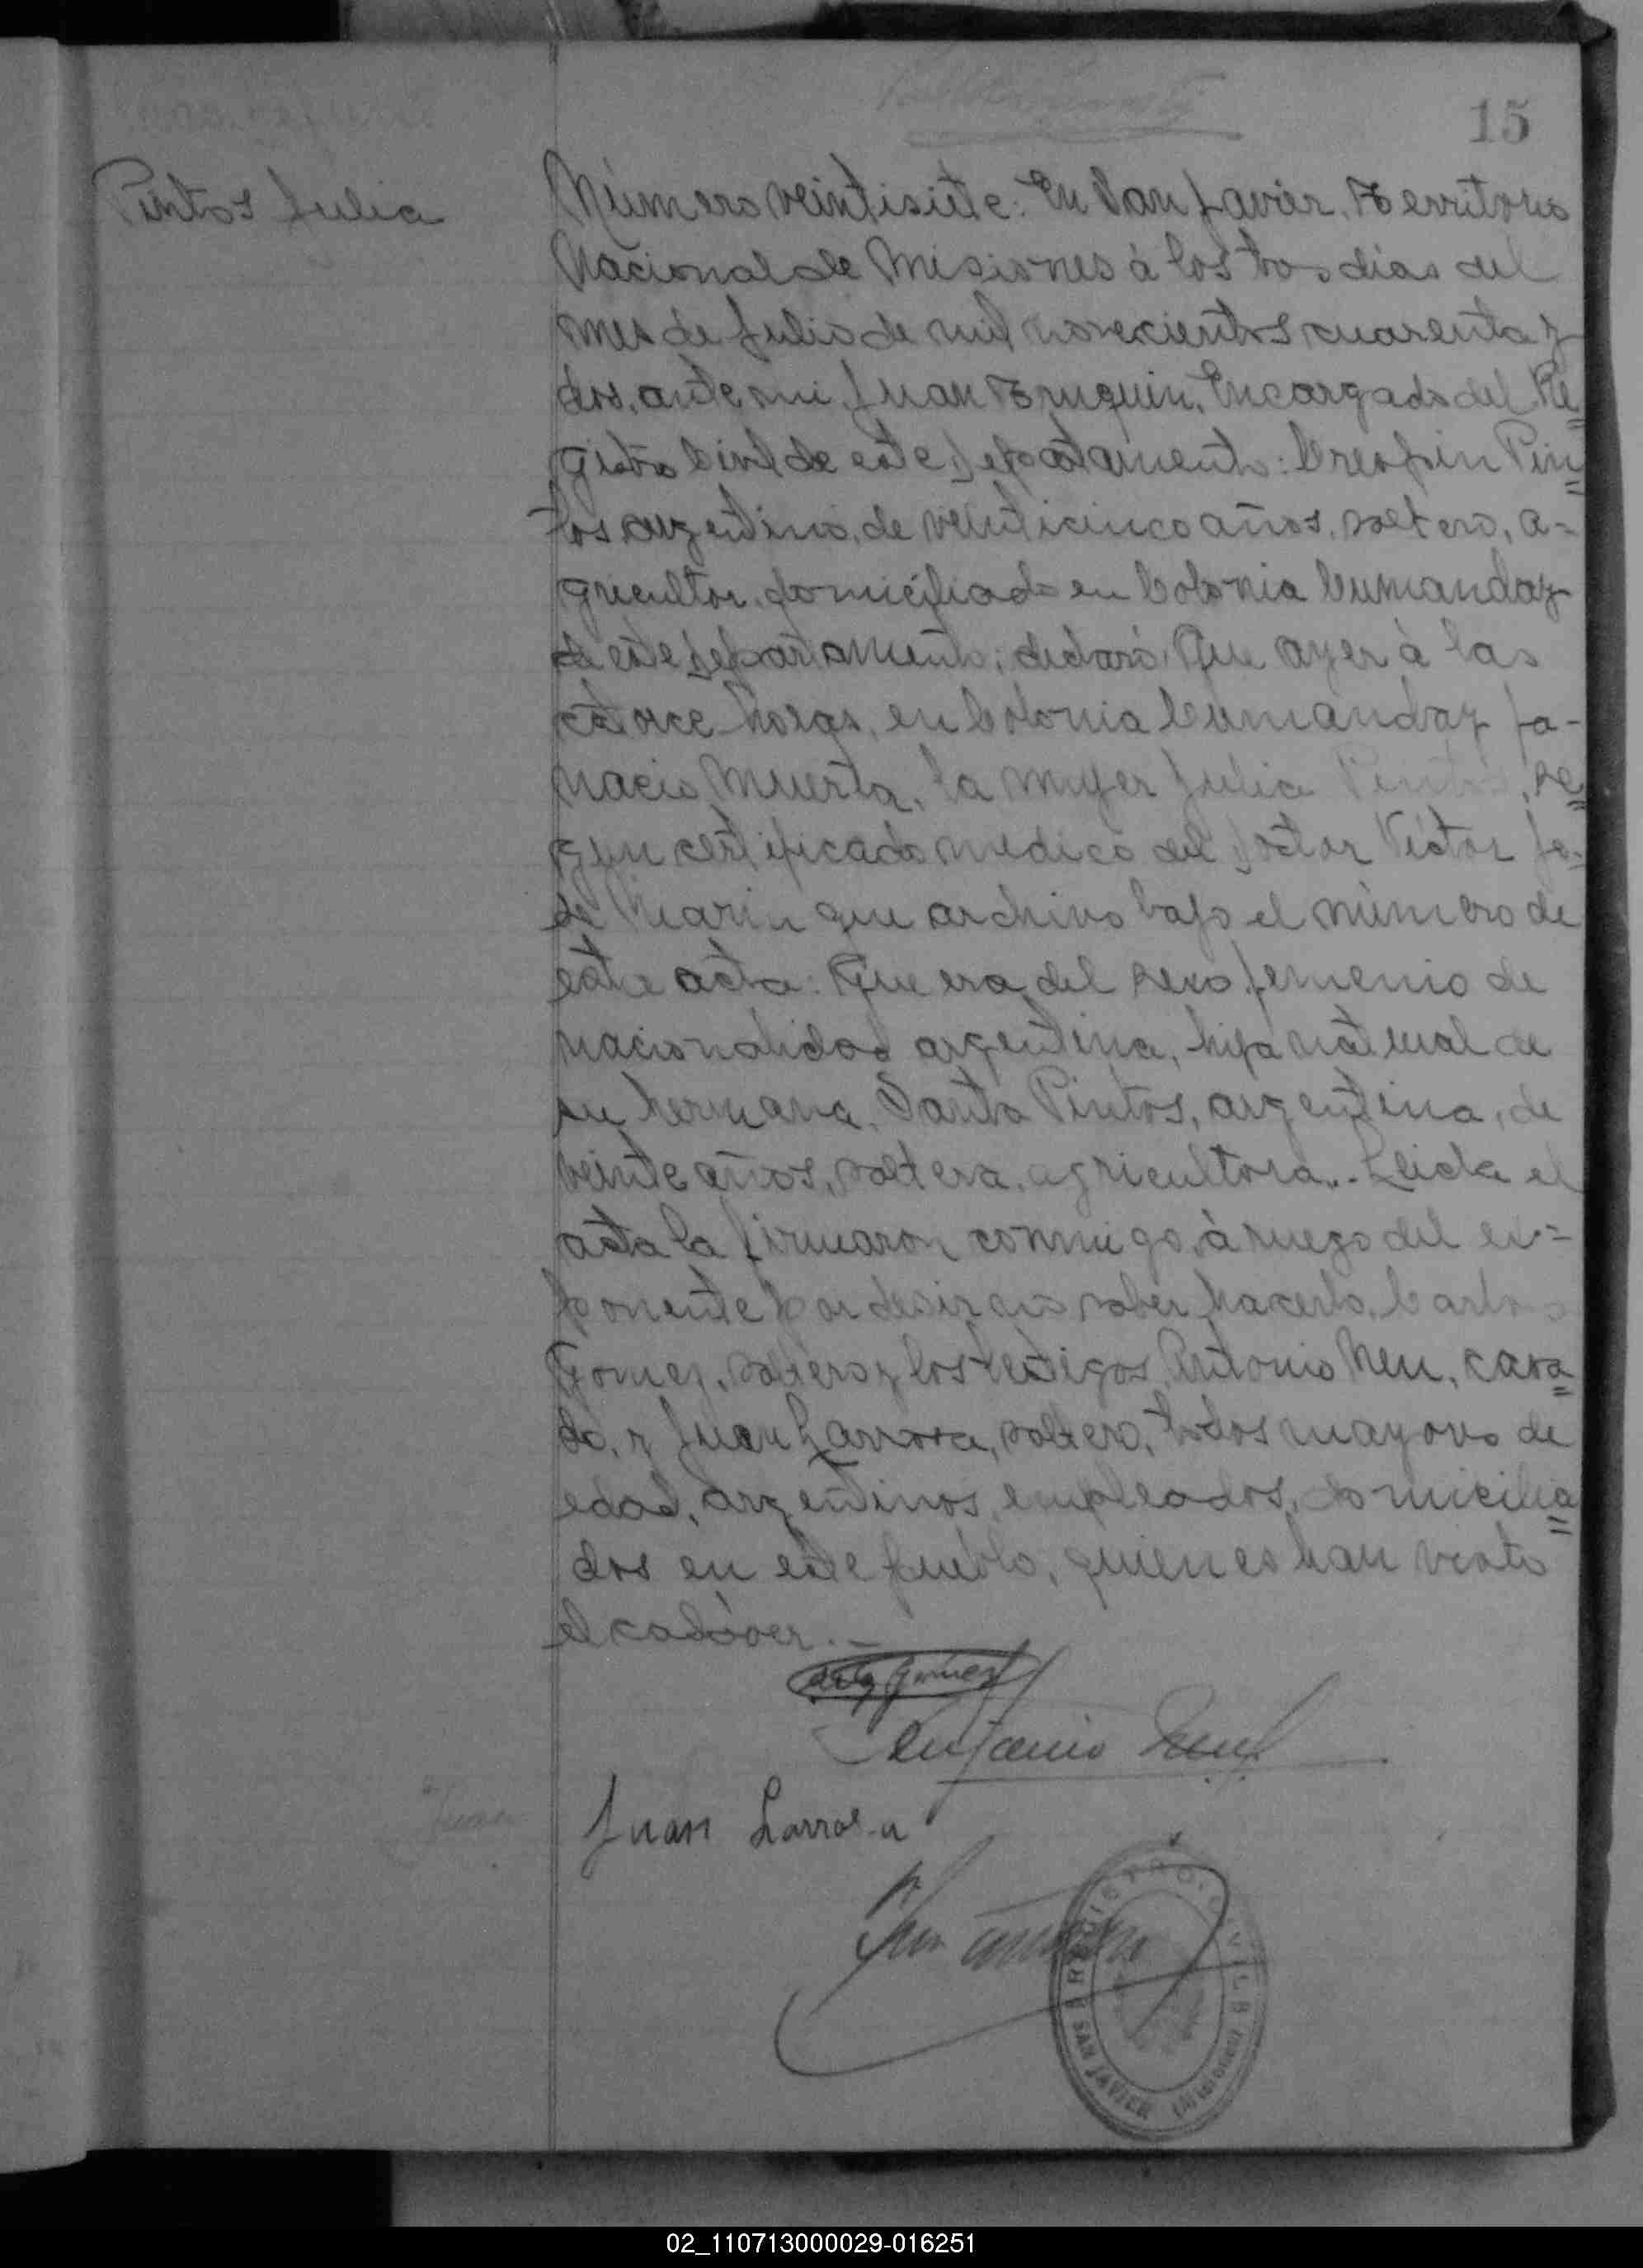 15
Pintos Julia
Número veintisiete: En San Javier, Territorio
Nacional de Misiones á los tres dias del
mes de Julio de mil novecientos cuarenta y
dos, ante mi, Juan Encargado del Re=
gistro Civil de este Departamento: Crespin Pin=
tos argentino, de veinticinco años, soltero, a=
gricultor, domiciliado en Colonia Cumanday
de este Departamento; declaró: Que ayer á las
catorce horas, en Colonia Cumanday
nacio muerta, la mujer Julia Pintos, se=
gun certificado medico del Doctor Victor
de Marin que archivo bajo el número de
este acta: Que era del sexo femenio de
nacionalidad argentina, hija natural de
su hermana, Santa Pintos, argentina, de
veinte años, soltera, agricultora.. Leida el
acta la firmaron conmigo, á ruego del ex=
ponente por desir no saber hacerlo, Carlos
Gomez, soltero y los testigos, Antonio Neu, casa=
do, y Juan Larrosa, soltero, todos mayores de
edad, argentinos, empleados, domicilia=
dos en este pueblo, quienes han visto
el cadáver.-
Gomez
Juan Larrosa
REGISTRO CIVIL
SAN JAVIER (Misiones)
02_110713000029-016251